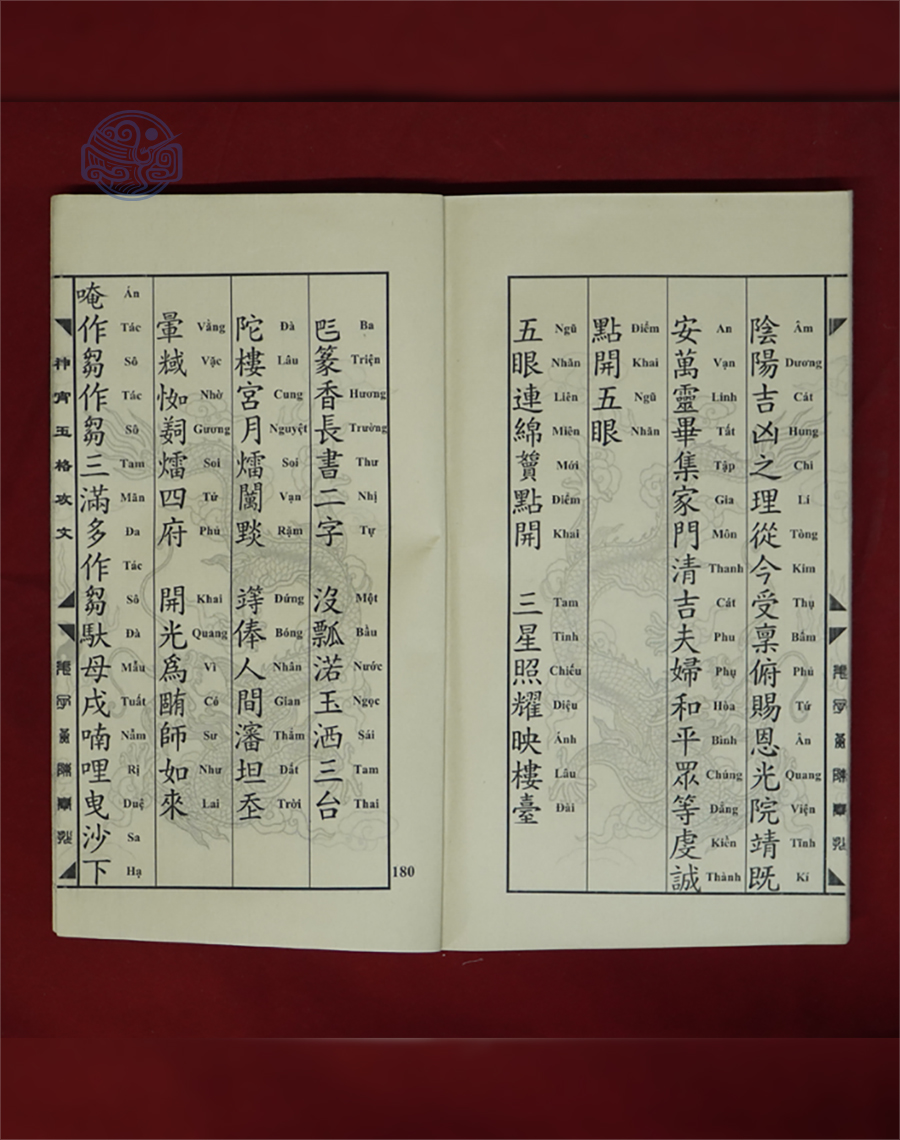 陰陽吉凶之理從今受稟俯賜恩光院靖既
Âm Dương Cát Hung Chi Lí Tòng Kim Thụ Bẩm Phủ Tứ Ân Quang Viện Tĩnh Kí
安萬靈畢集家門清吉夫婦和平眾等虔誠
An Vạn Linh Tất Tập Gia Môn Thanh Cát Phu Phụ Hòa Bình Chúng Đẳng Kiền Thành
點開五眼
Điểm Khai Ngũ Nhãn
五眼連綿點開 三星照耀映樓臺
Ngũ Nhãn Liên Miên Mới Điểm Khai Tam Tinh Chiếu Diệu Ánh Lâu Đài
篆香長書二字 沒瓢渃玉洒三台
Ba Triện Hương Trường Thư Nhị Tự Một Bầu Nước Ngọc Sái Tam Thai
陀樓宮月 俸人間瀋坦
Đà Lâu Cung Nguyệt Soi Vạn Rậm Đứng Bóng Nhân Gian Thẳm Đất Trời
暈四府 開光爲師如來
Vầng Vặc Nhờ Gương Soi Tứ Phủ Khai Quang Vì Có Sư Như Lai
唵作芻作芻三滿多作芻馱母戌喃哩曳沙下
Án Tác Sô Tác Sô Tam Mãn Đa Tác Sô Đà Mẫu Tuất Nẵm Rị Duệ Sa Hạ
神宵玉格攻文
180